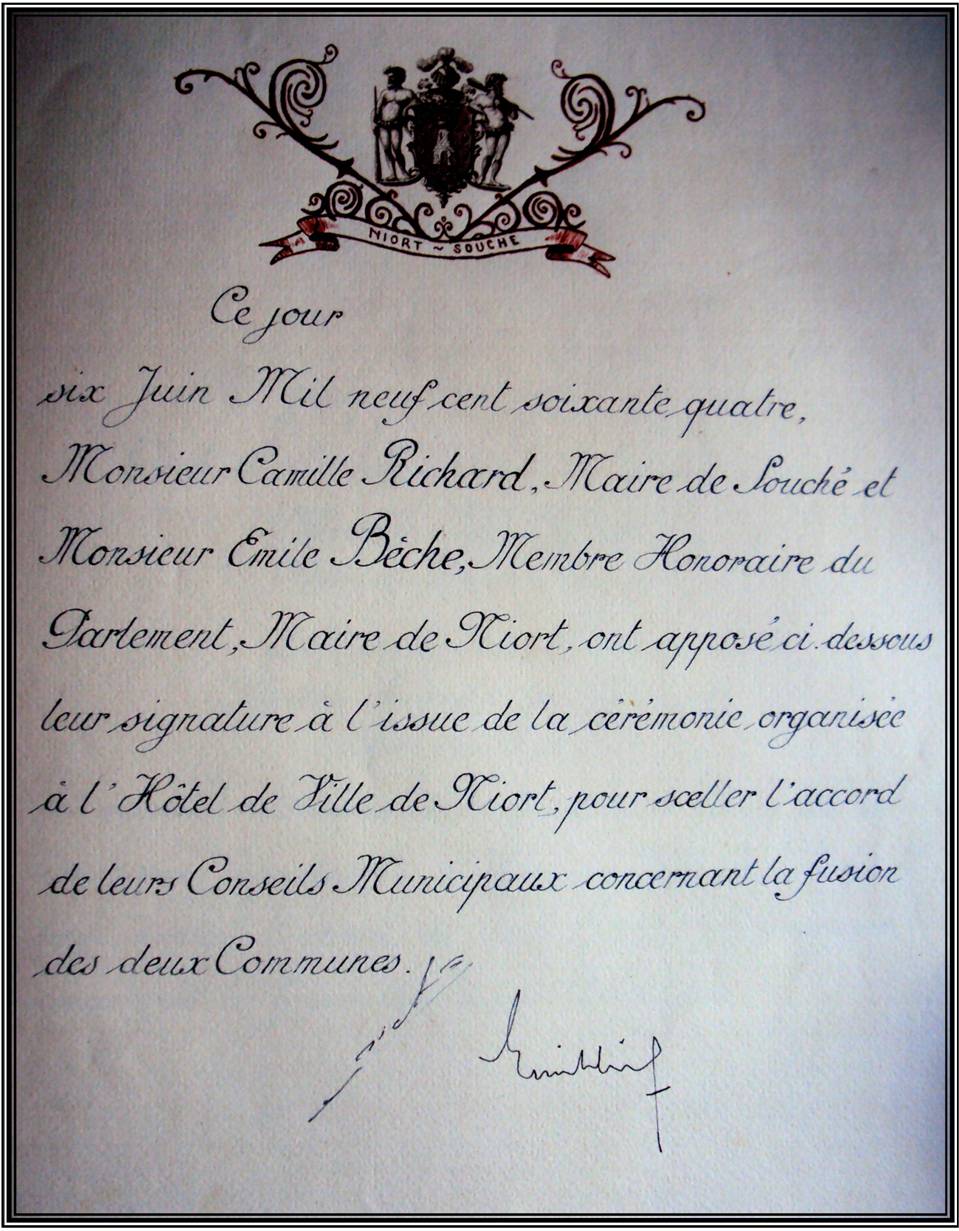 NIORT ~ SOUCHE
Ce jour
six Juin Mil neuf cent soixante quatre,
Monsieur Camille Richard, Maire de Souché et
Monsieur Emile Bèche, Membre Honoraire du
Parlement, Maire de Niort, ont apposé ci-dessous
leur signature à l'issue de la cérémonie organisée
à l'Hôtel de Ville de Niort, pour sceller l'accord
de leurs Conseils Municipaux concernant la fusion
des deux Communes.